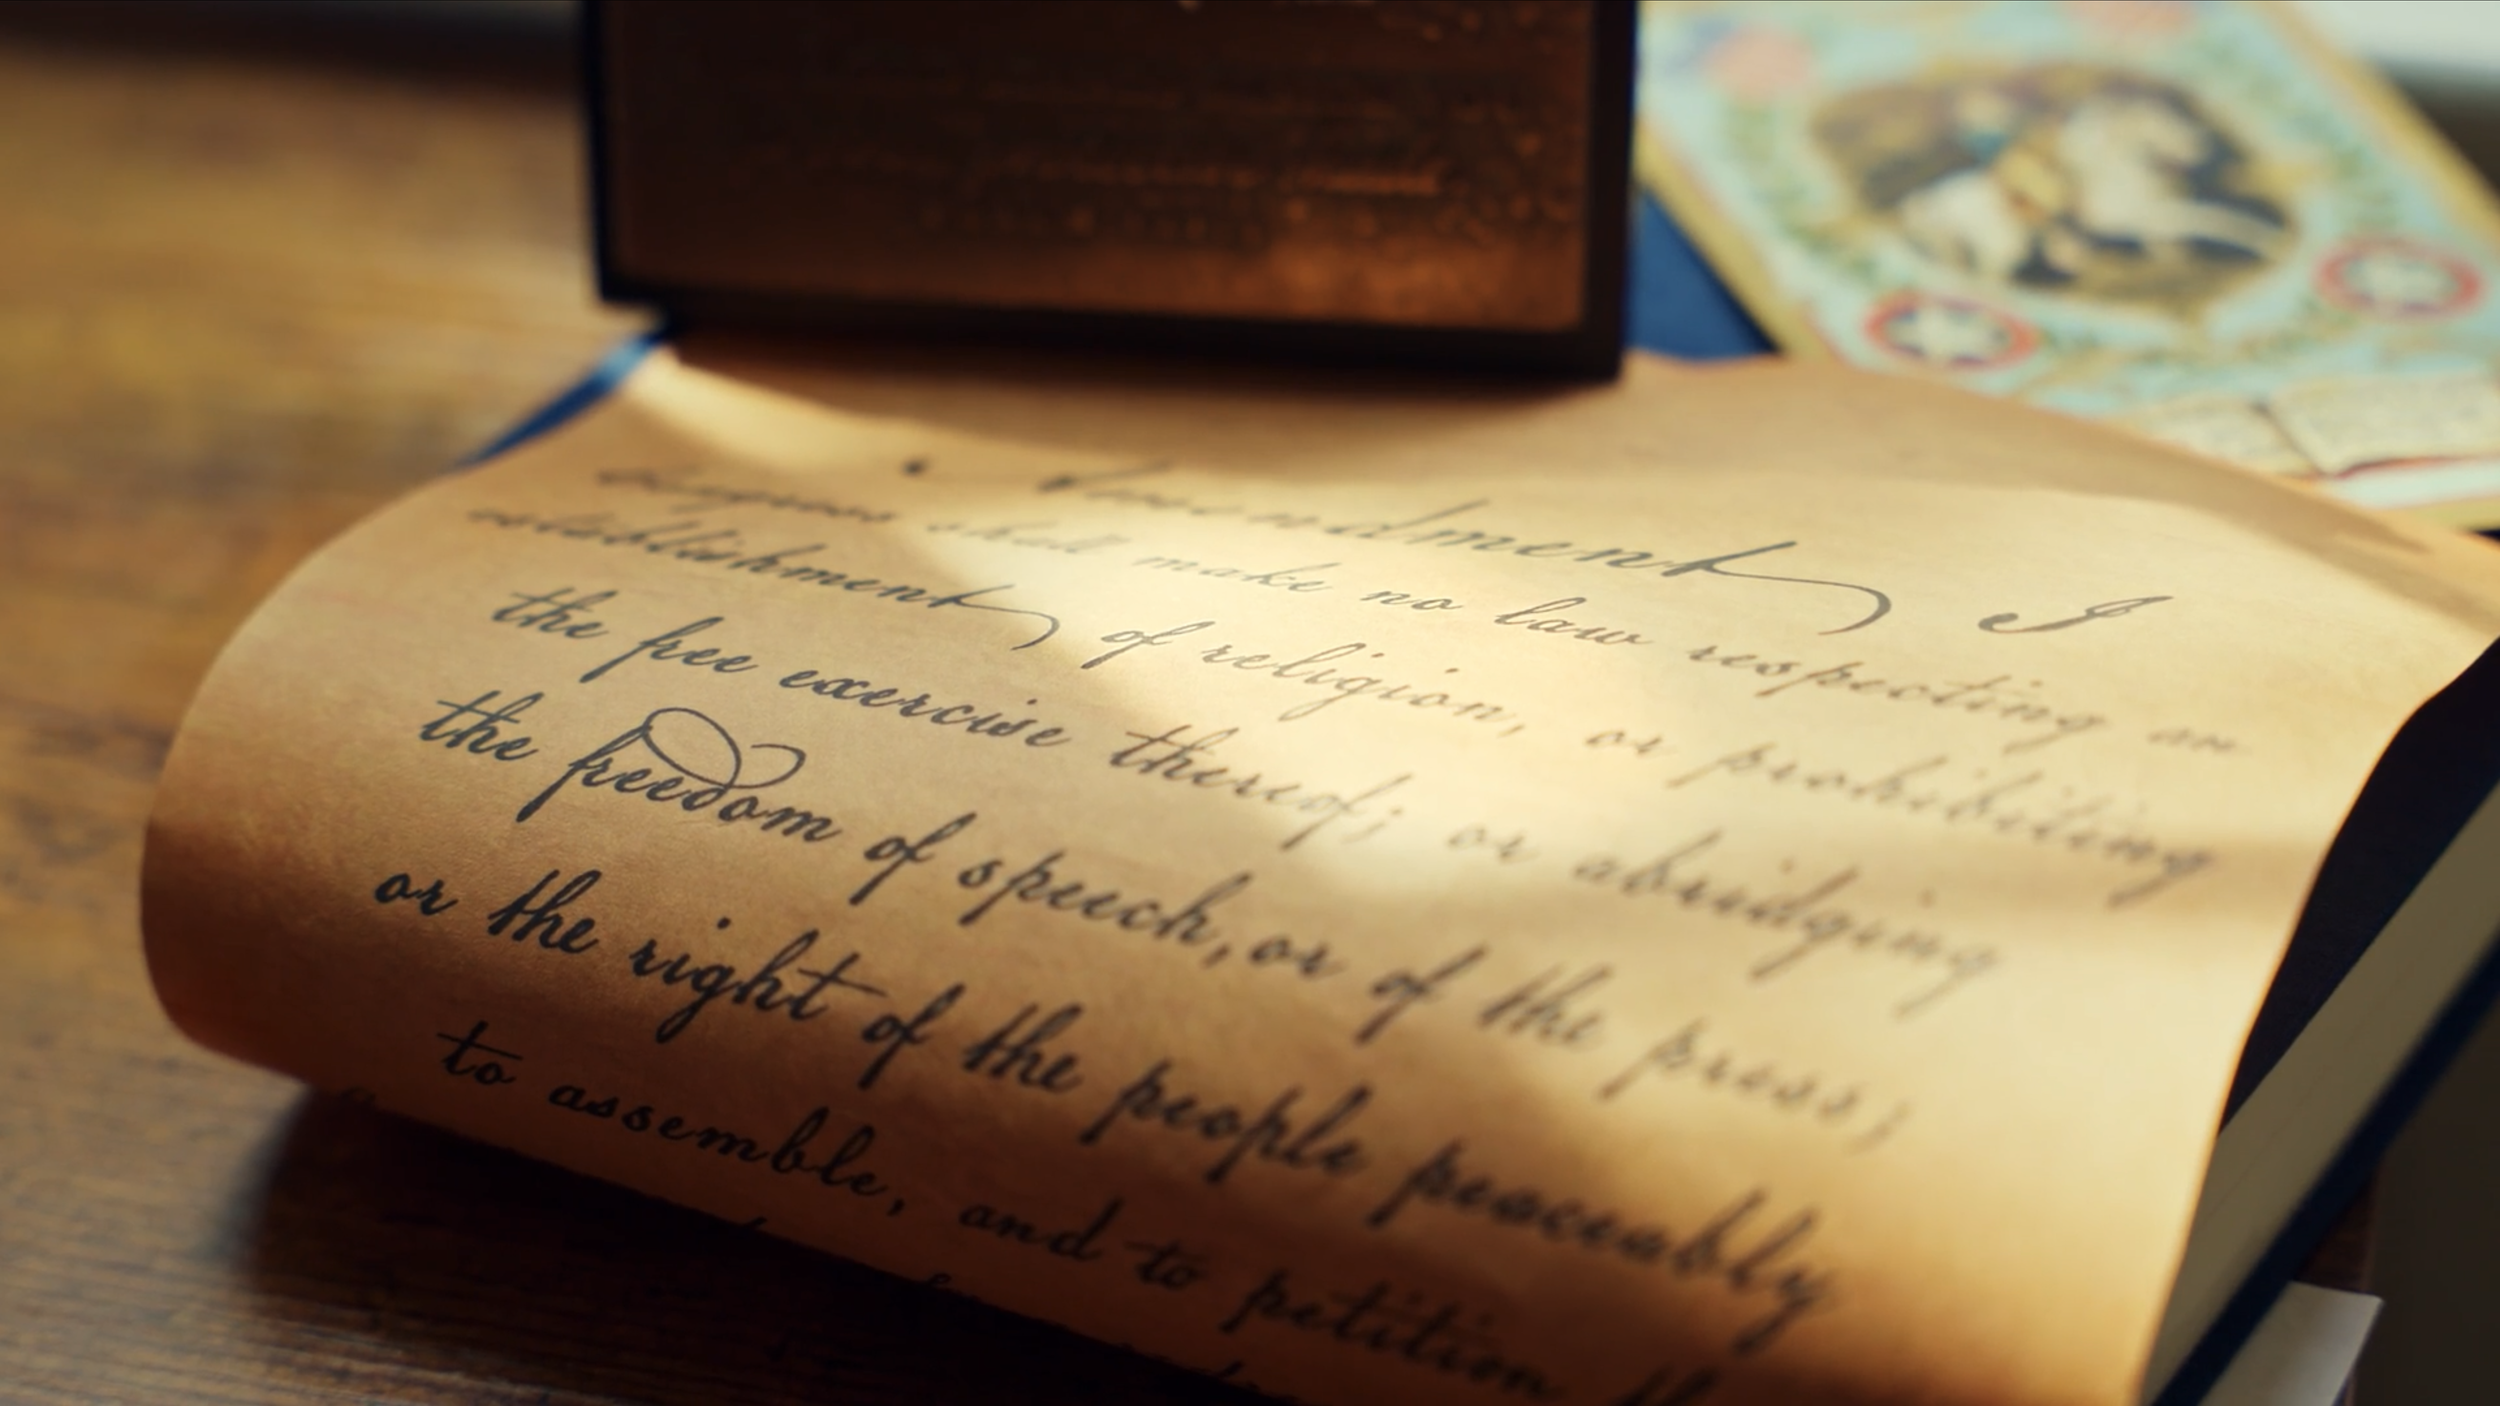 Amendment I
Congress shall make no law respecting an
establishment of religion, or prohibiting
the free exercise thereof; or abridging
the freedom of speech, or of the press;
or the right of the people peaceably
to assemble, and to petition